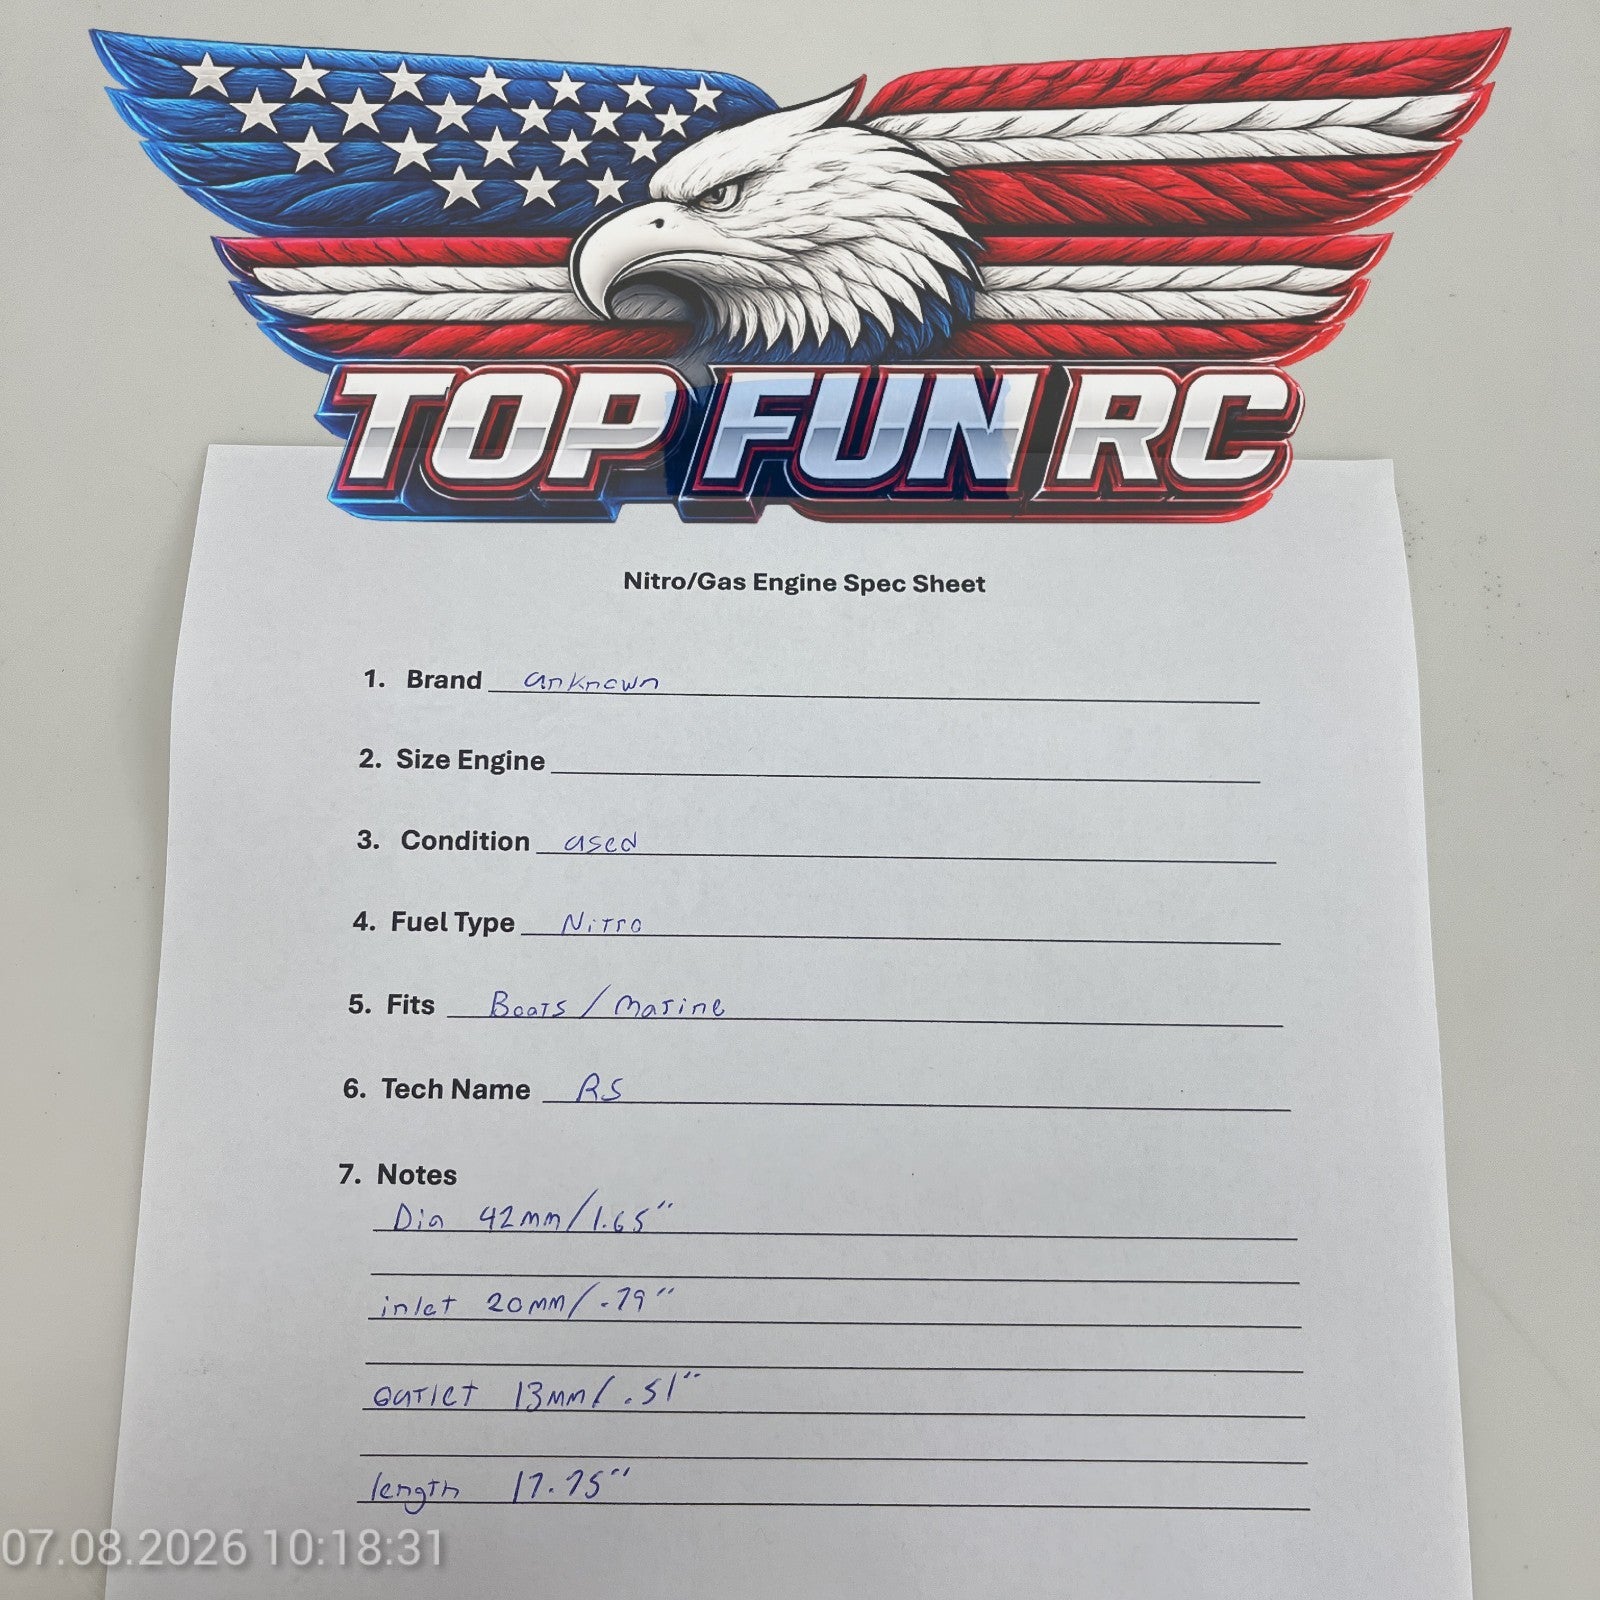 TOP FUN RC
Nitro/Gas Engine Spec Sheet
1. Brand unknown
2. Size Engine
3. Condition used
4. Fuel Type Nitro
5. Fits Boats / Marine
6. Tech Name RS
7. Notes
Dia 42mm/1.65"
inlet 20mm/.79"
outlet 13mm/.51"
length 17.75"
07.08.2026 10:18:31